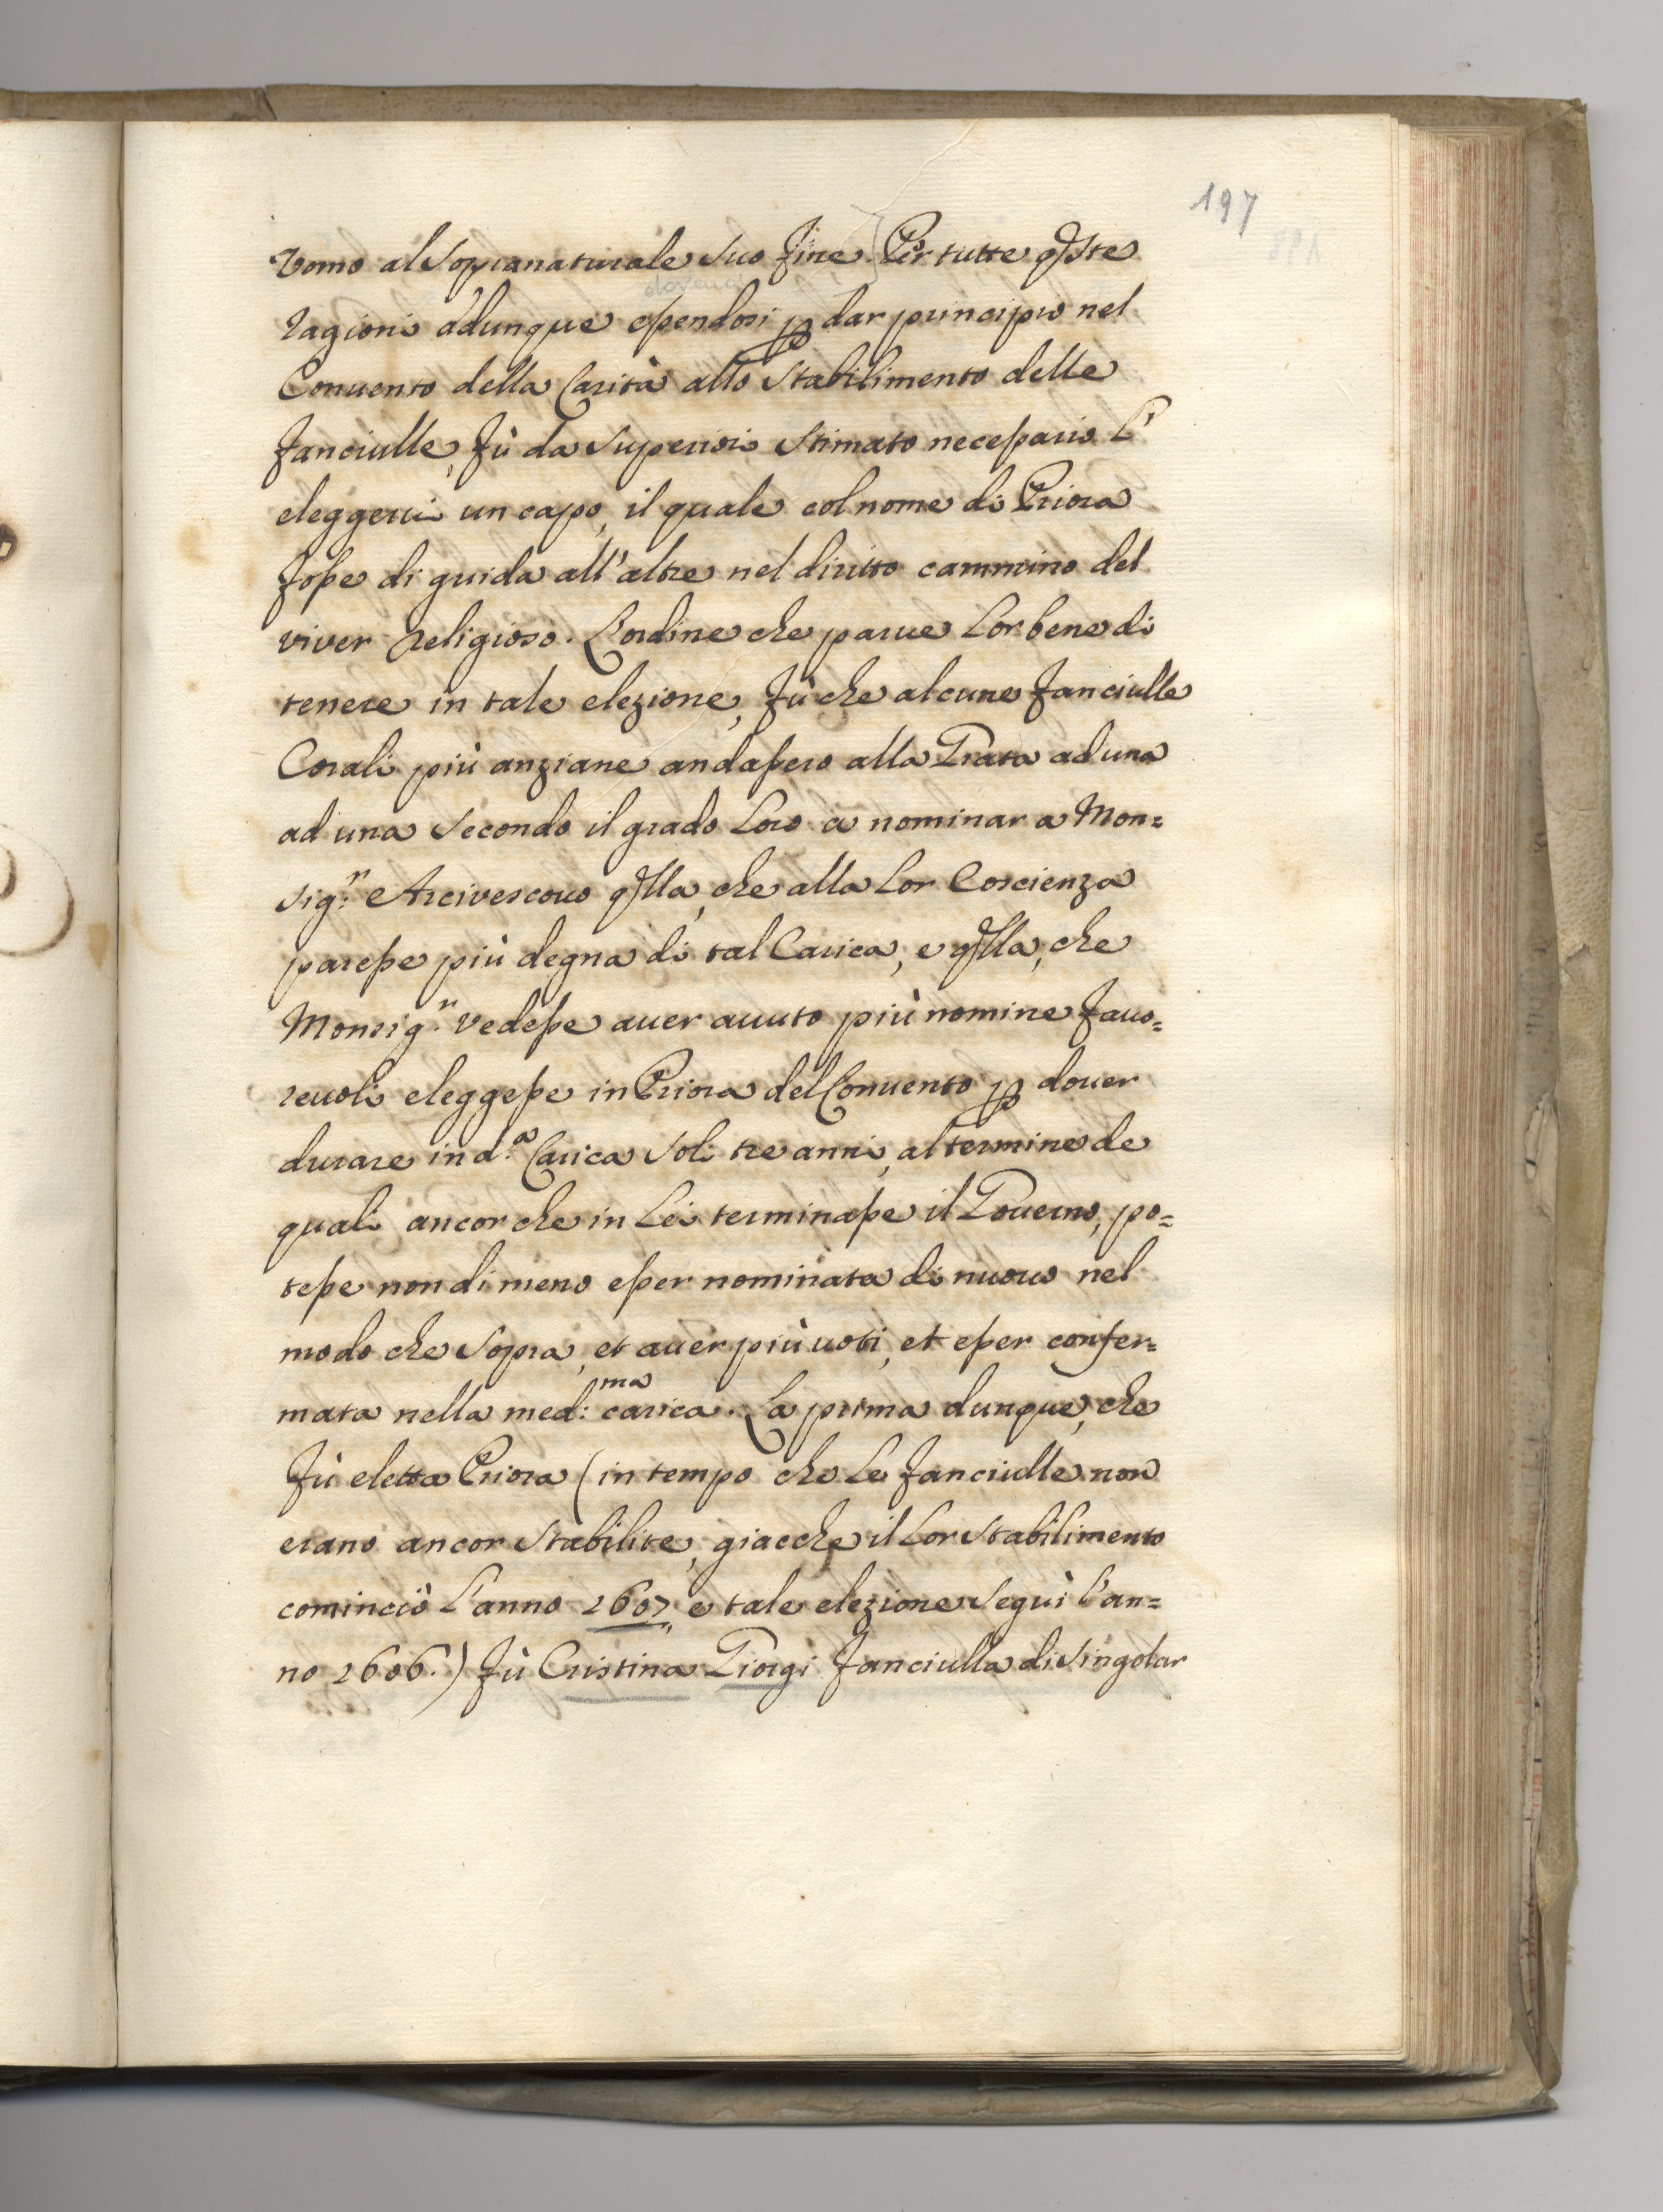 197
Vomo al Sopranaturale suo fine. Per tutte q̃ste
ragioni adunque essendosi p dar principio nel
Conuento della Carità allo Stabilimento delle
fanciulle, fù da Superiori Stimato necessario L'
eleggerui un capo, il quale col nome di Priora
fosse di guida all'altre nel diritto cammino del
viver religioso. L'ordine che parue Lor bene di
tenere in tale elezione, fù che alcune fanciulle
Corali più anziane andassero alla Grata ad una
ad una Secondo il grado Loro a nominar a Mon=
sig.r Arcivescouo q̃lla, che alla Lor Coscienza
paresse più degna di tal Carica, e q̃lla, che
Monsig.r Vedesse auer auuto più nomine fauo=
reuoli eleggesse in Priora del Conuento p douer
durare in d.a Carica Soli tre anni, al termine de
quali ancor che in Lei terminasse il Gouerno, po=
tesse nondimeno esser nominata di nuouo nel
modo che Sopra, et auer più uoti, et esser confer=
mata nella med:ma carica. La prima dunque, che
fù eletta Priora (in tempo che Le fanciulle non
erano ancor Stabilite, giacche il Lor Stabilimento
cominciò L'anno 1607, e tale elezione Seguì l'an=
no 1606.) fù Cristina Giorgi fanciulla di Singolar